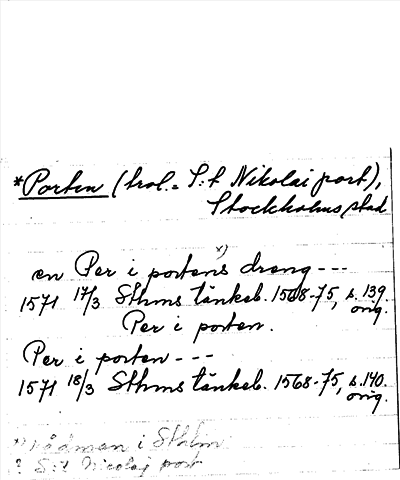 *Porten (trol. = S:t Nikolai port),
Stockholms stad
en Per i portens x) dreng ---
1571 17/3 Sthms tänkeb. 1568-75, s. 139.
orig.
Per i porten.
Per i porten ---
1571 18/3 Sthms tänkeb. 1568-75, s. 140.
orig.
x) rådman i Sthlm
? S:t Nicolaj port